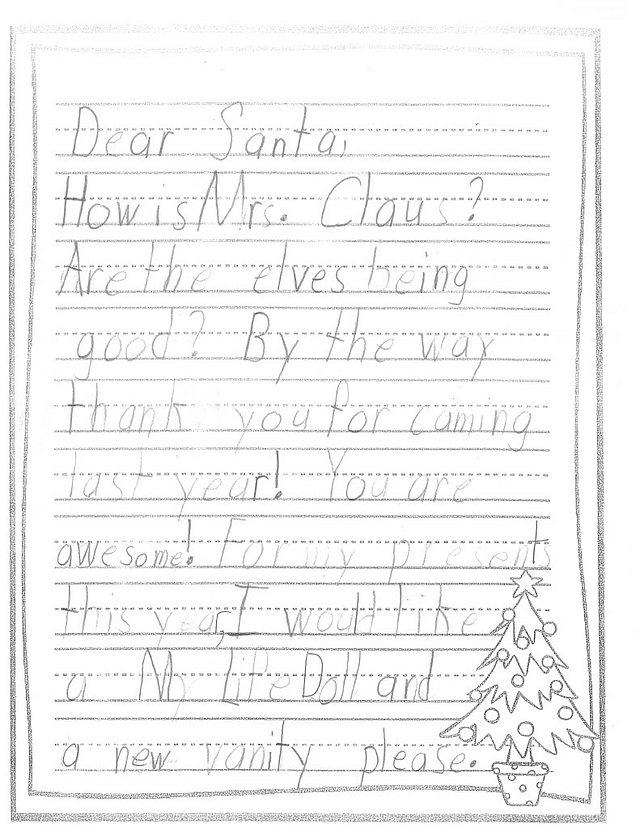 Dear Santa,
How is Mrs. Claus?
Are the elves being
good? By the way
thank you for caming
last year! You are
awesome! For my presents
this year, I would like
a My Life Doll and
a new vanity please.